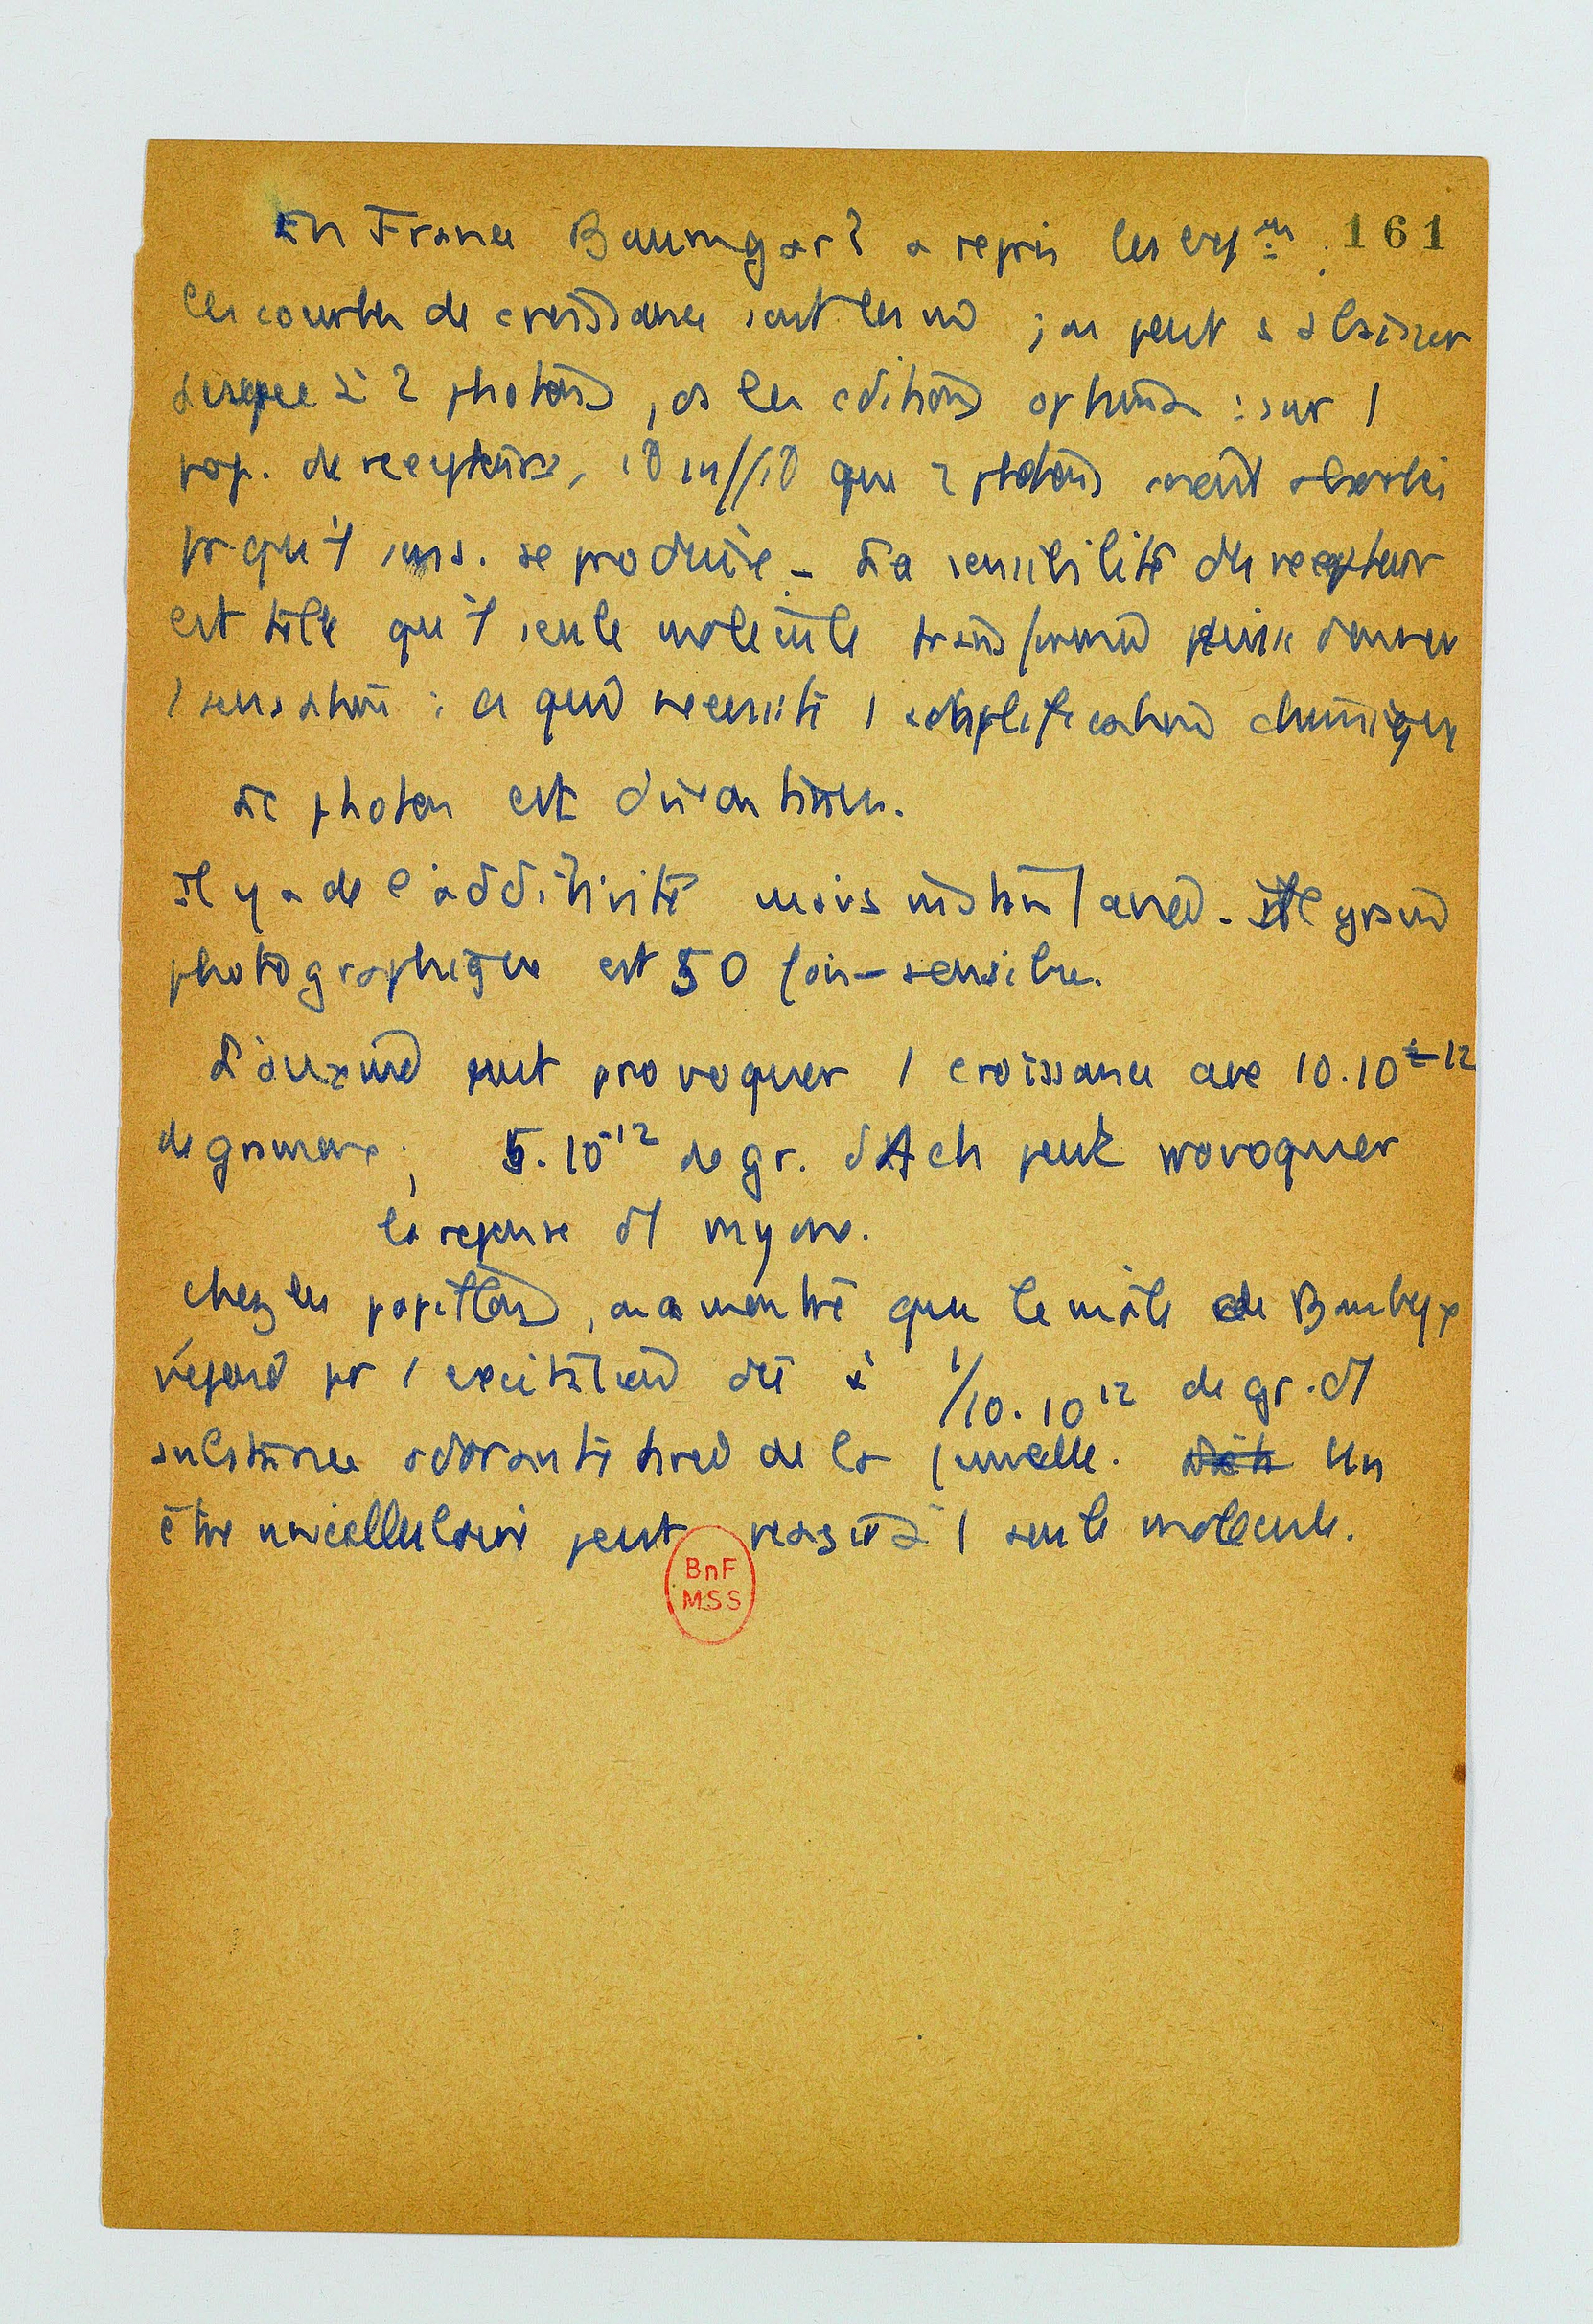 En France Baumgar? a repris les exp.ces 161
les courbes de croissance sont les ; on peut s'abaisser
jusque à 2 photons, ds les cditions optima : sur 1
pop. de recepteurs, il que 2 photons soient absorbés
pr qu'1 sens. se produise – La sensibilité du recepteur
est telle qu'1 seule molécule transformée puisse donner
1 sensation : ce qui necessite 1 amplification chimique
Le photon est
Il y a de l'additivité mais Le grain
photographique est 50 fois – sensible.
L'auxine peut provoquer 1 croissance avec 10.10-12
de grammes ; 5.10-12 de gr. d'Ach peut provoquer
la reponse d'1 myone.
Chez les papillons, on a montré que le mâle de Bombyx
répond pr 1 excitation dûe à 1/10.10 12 de gr. d'1
substance odorante tirée de la femelle. Un
être unicellulaire peut reagir à 1 seule molecule.
BnF
MSS